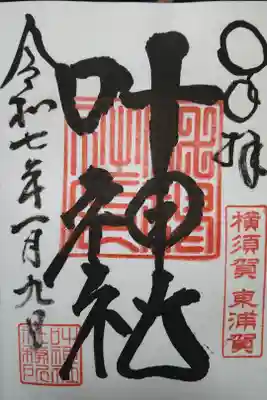 奉拝
叶神社
令和七年一月九日
横須賀 東浦賀